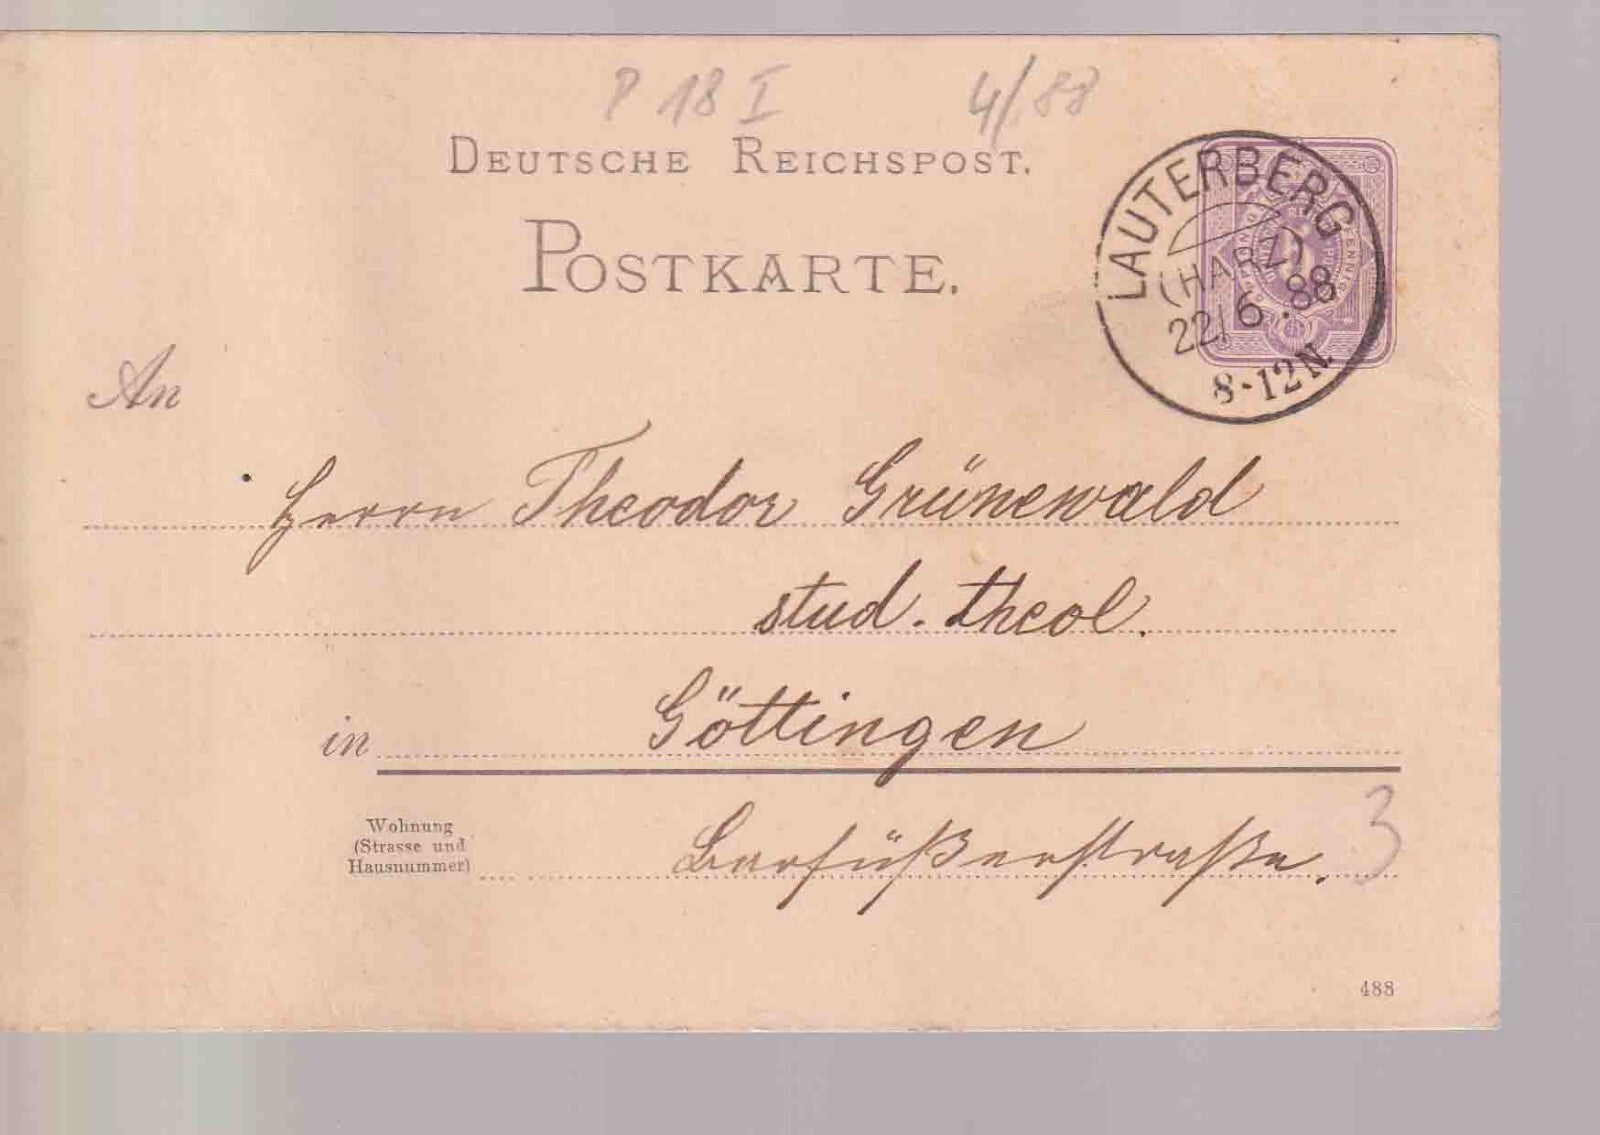 P 18 I 4/88
DEUTSCHE REICHSPOST.
POSTKARTE.
LAUTERBERG
(HARZ)
22/6.88
8-12N.
5
PFENNIG
An
Herrn Theodor Grünewald
stud. theol.
in Göttingen
Wohnung
(Strasse und
Hausnummer)
Barfüßerstraße. 3
488